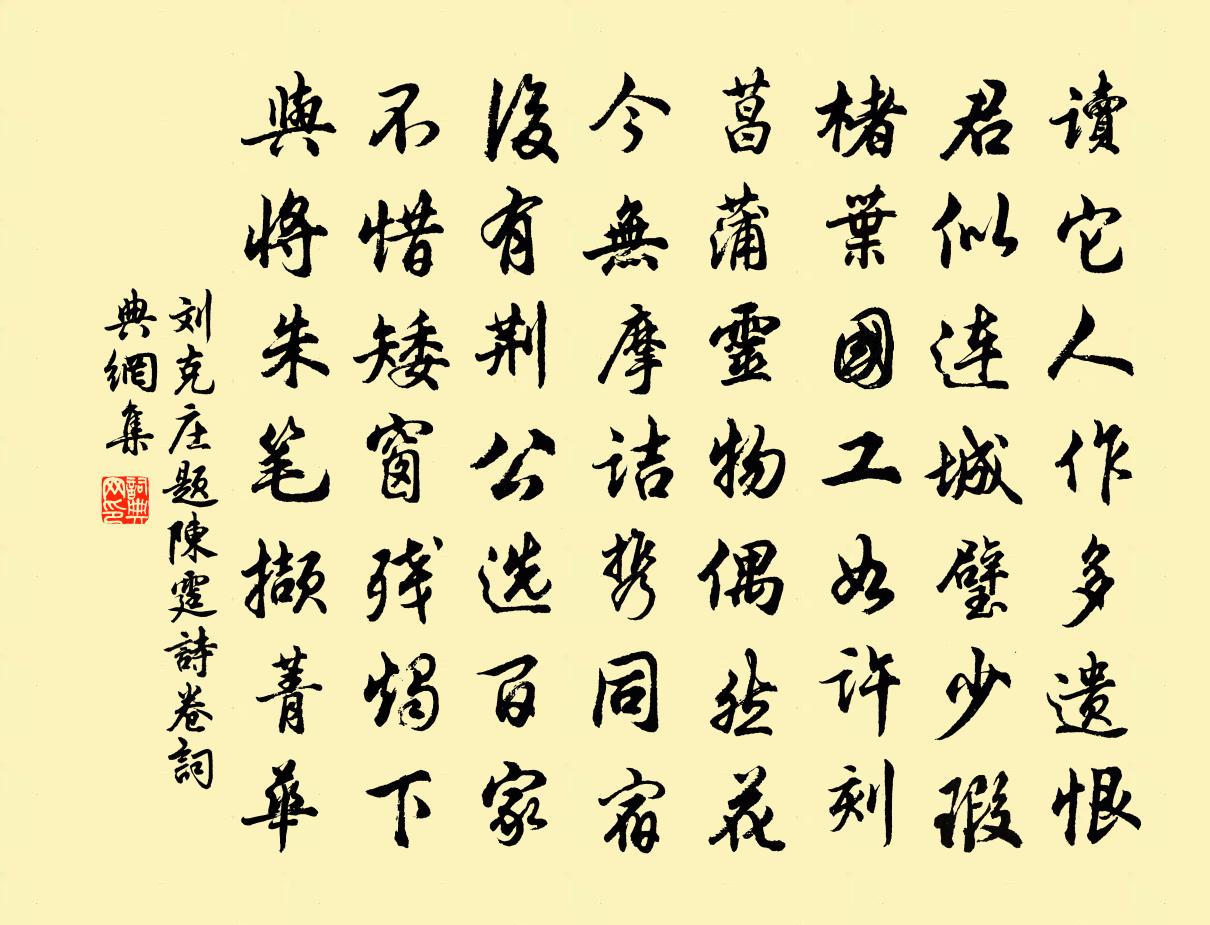 讀它人作多遺恨
君似連城璧少瑕
楮葉國工如許刻
菖蒲靈物偶然花
今無摩詰携同宿
後有荆公选百家
不惜矮窗残燭下
與將朱笔擷菁華
刘克庄题陳霆詩卷詞
典網集
詞典网印